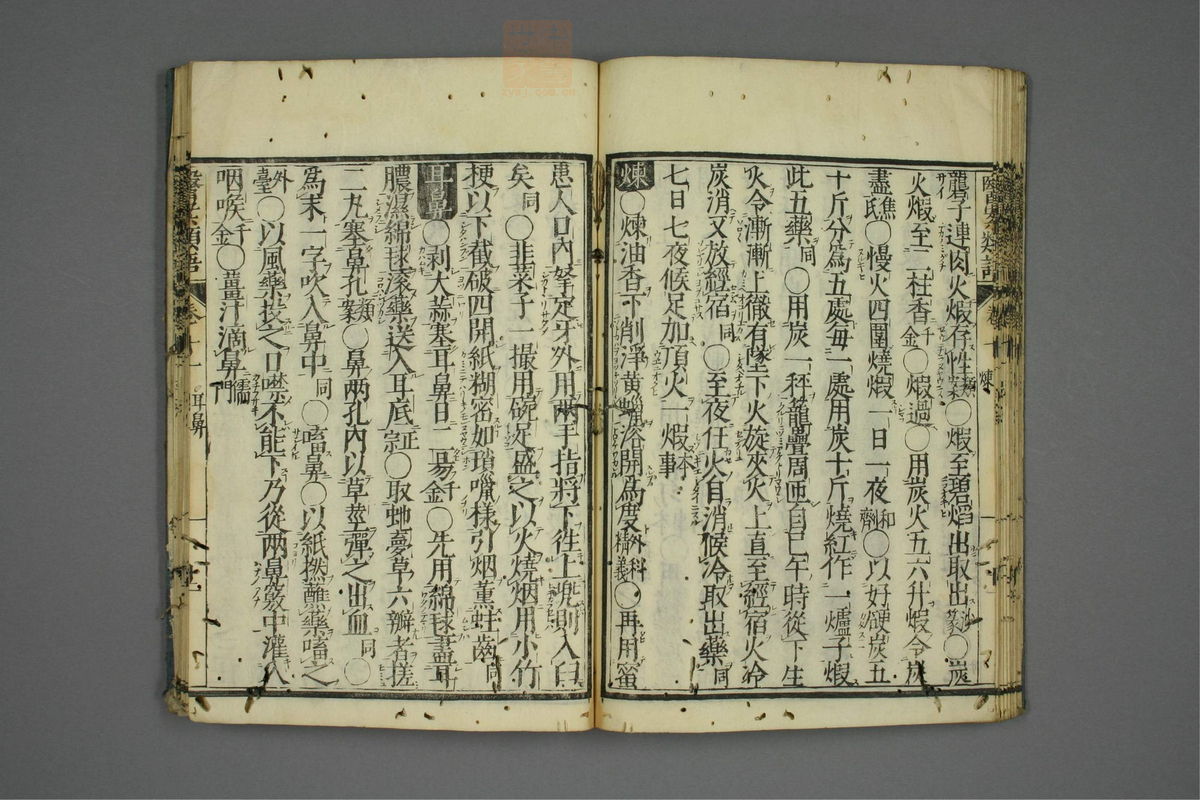 襲子連肉火煅存性類案○煅至碧焰出取出沙篆○炭
火煅至二柱香千金○煅過○用炭火五六升煅令炭
盡醮○慢火四圍燒煅一日一夜和劑○以好硬炭五
十斤分為五處每一處用炭十斤燒紅作一爐子煅
此五藥同○用炭一秤籠疊周匝自巳午時從下生
火令漸漸上徹有墜下火旋夾火上直至經宿火冷
炭消又放經宿同○至夜任火自消候冷取出藥同
七日七夜候足加頂火一煅本事
煉○煉油香下削淨黃蠟溶開為度外科精義○再用蜜
患人口內拏定牙外用兩手指將下往上兜則入臼
矣同○韭菜子一撮用碗足盛之以火燒烟用小竹
梗以下截破四開紙糊密如瑣嚹樣引烟薰蛀齒同
耳鼻○剥大蒜塞耳鼻日二易千金○先用綿球蘸耳
膿濕綿球滚藥送入耳底正宗○取虵夢草六瓣者搓
二丸塞鼻孔類案○鼻兩孔內以草莖彈之出血同○
為末一字吹入鼻中同○畜鼻○以紙撚蘸藥畜之
外臺○以風藥投之口噤不能下乃從兩鼻竅中灌入
咽喉千金○薑汁滴鼻儒門
卷十一 耳鼻